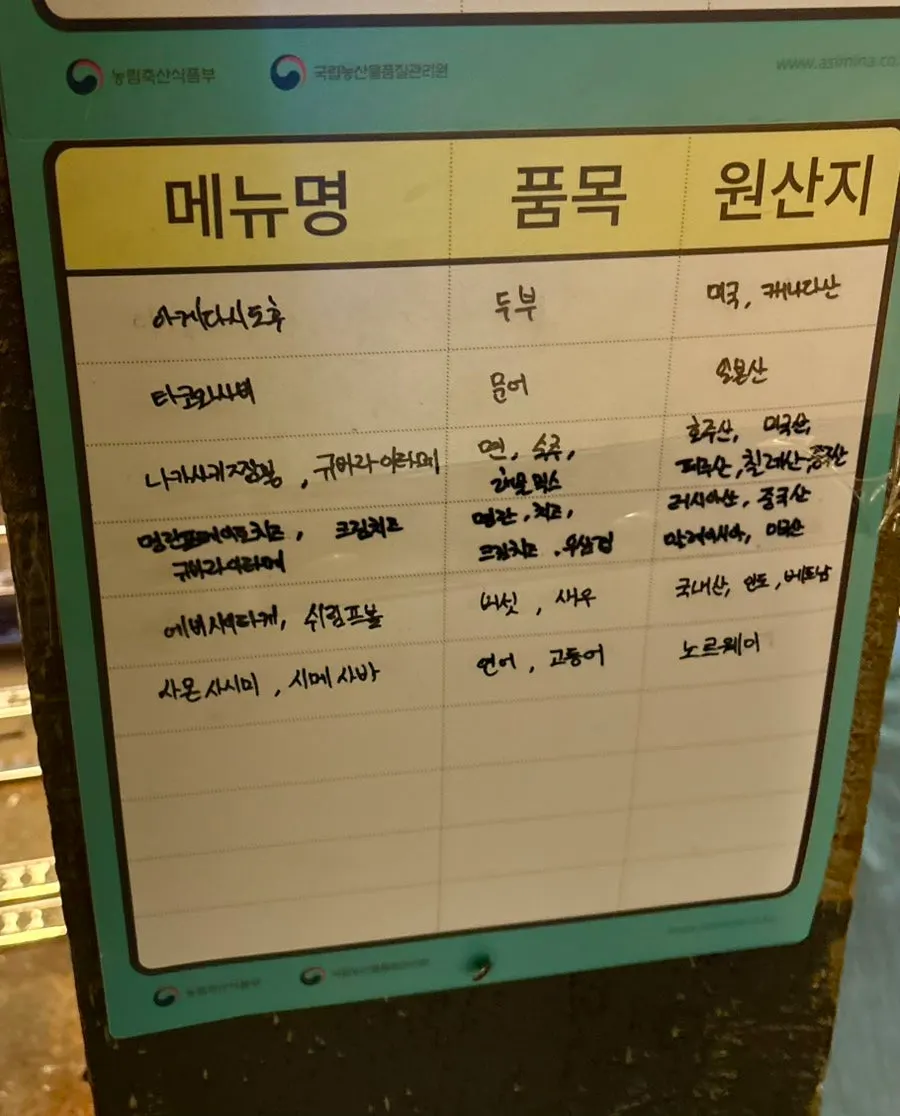 농림축산식품부 국립농산물품질관리원 www.asimina.co
메뉴명 품목 원산지
아게다시도후 두부 미국, 캐나다산
타코와사비 문어 일본산
나가사키짬뽕, 규바라이라메 면, 숙주, 해물믹스 호주산, 미국산, 페루산, 칠레산, 중국산
명란포테이토치즈, 크림치즈 명란, 치즈, 러시아산, 중국산
규바라이라메 크림치즈, 우삼겹 말레이시아, 미국산
에비시이타케, 쉬림프볼 버섯, 새우 국내산, 인도, 베트남
사몬사시미, 시메사바 연어, 고등어 노르웨이
농림축산식품부